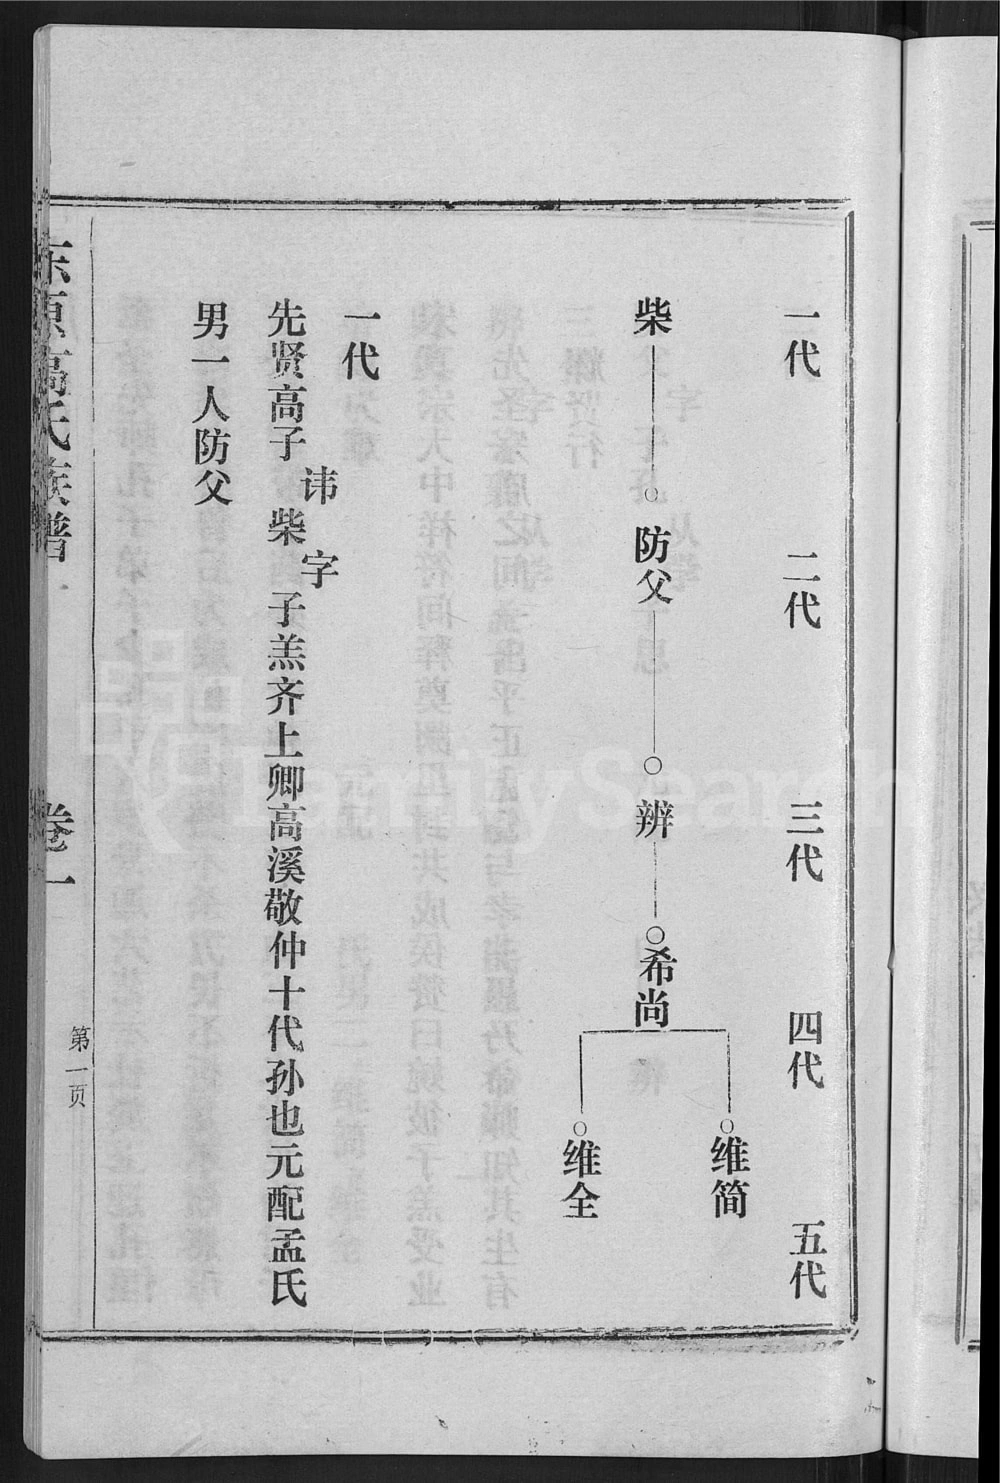 一代
二代
三代
四代
五代
柴
防父
辨
希尚
维简
维全
一代
先贤高子讳柴字子羔齐上卿高溪敬仲十代孙也元配孟氏
男一人防父
东原高氏族谱
卷一
第一页